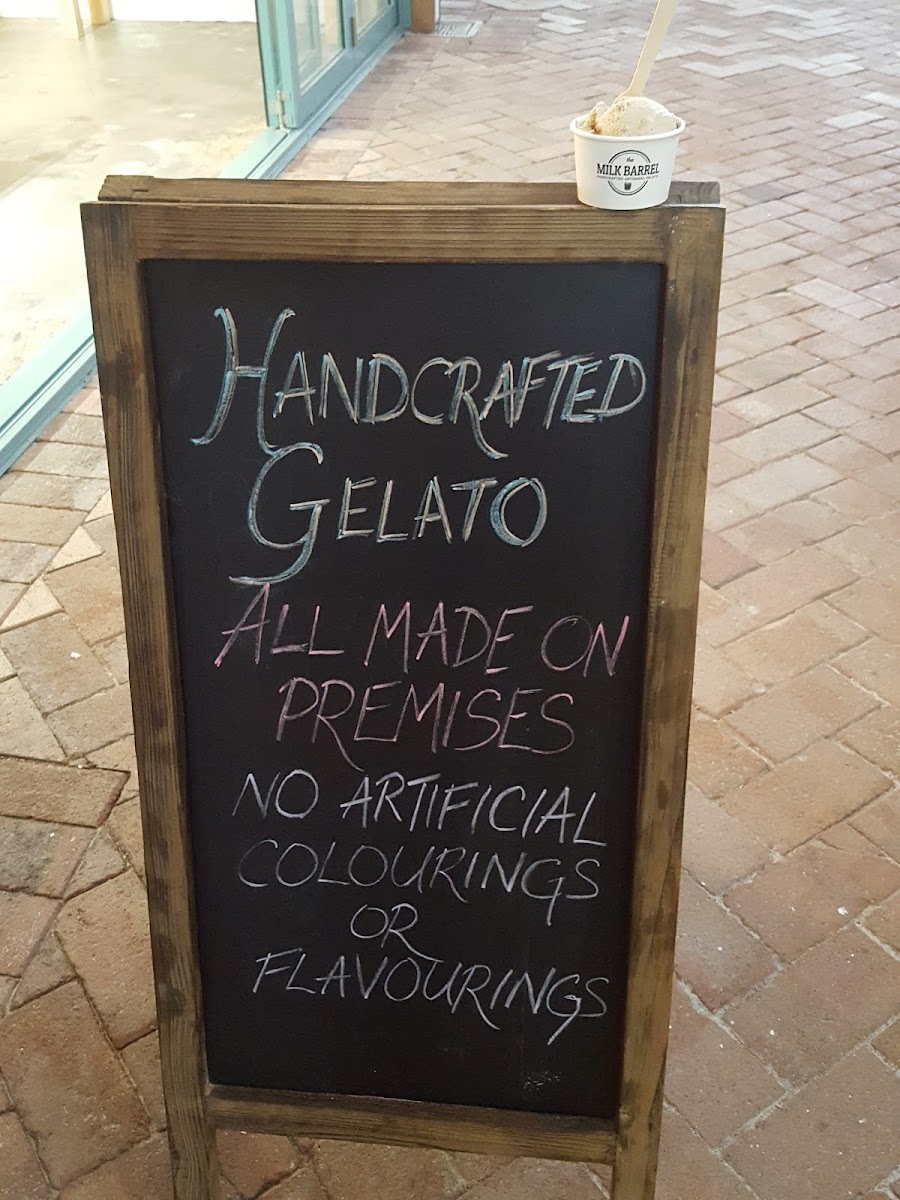 the
MILK BARREL
HANDCRAFTED ARTISANAL GELATO
HANDCRAFTED
GELATO
ALL MADE ON
PREMISES
NO ARTIFICIAL
COLOURINGS
OR
FLAVOURINGS